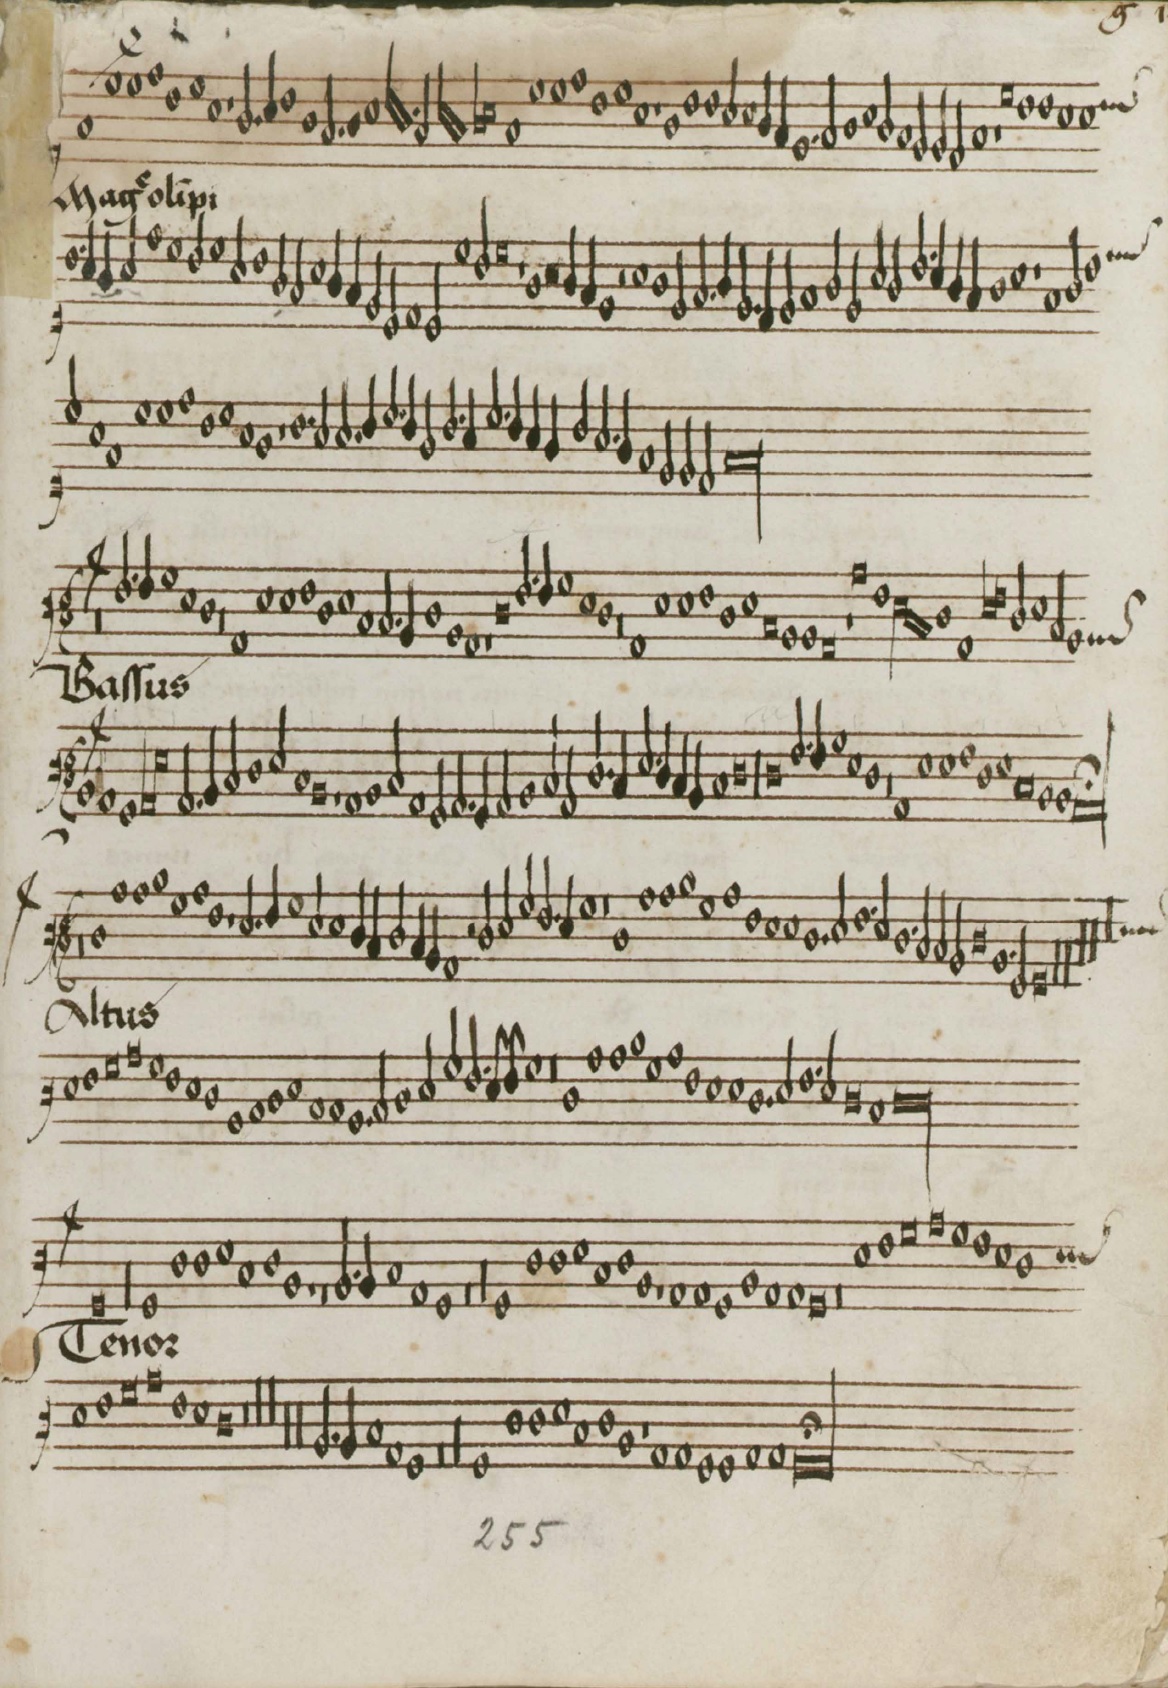 Magᵉ olipi
Bassus
Altus
Tenor
255